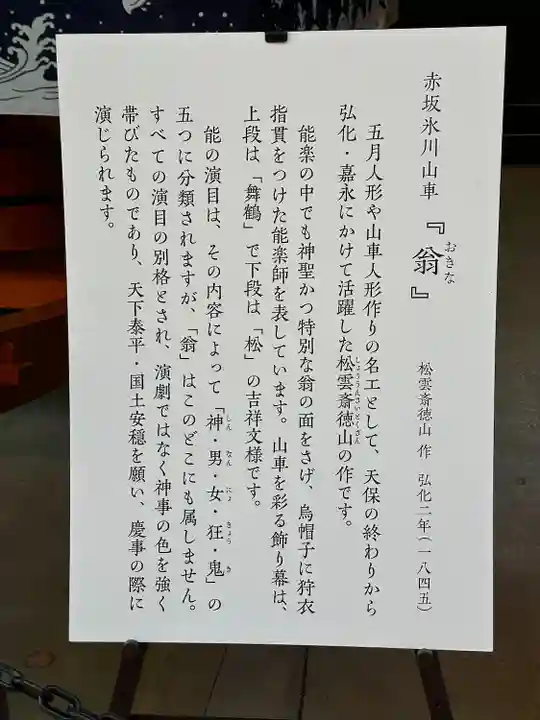 赤坂氷川山車『翁』
おきな
松雲斎徳山 作 弘化二年(一八四五)
五月人形や山車人形作りの名工として、天保の終わりから
弘化・嘉永にかけて活躍した松雲斎徳山の作です。
しょううんさいとくさん
能楽の中でも神聖かつ特別な翁の面をさげ、烏帽子に狩衣
指貫をつけた能楽師を表しています。山車を彩る飾り幕は、
上段は「舞鶴」で下段は「松」の吉祥文様です。
能の演目は、その内容によって「神・男・女・狂・鬼」の
しん なん にょ きょう き
五つに分類されますが、「翁」はこのどこにも属しません。
すべての演目の別格とされ、演劇ではなく神事の色を強く
帯びたものであり、天下泰平・国土安穏を願い、慶事の際に
演じられます。